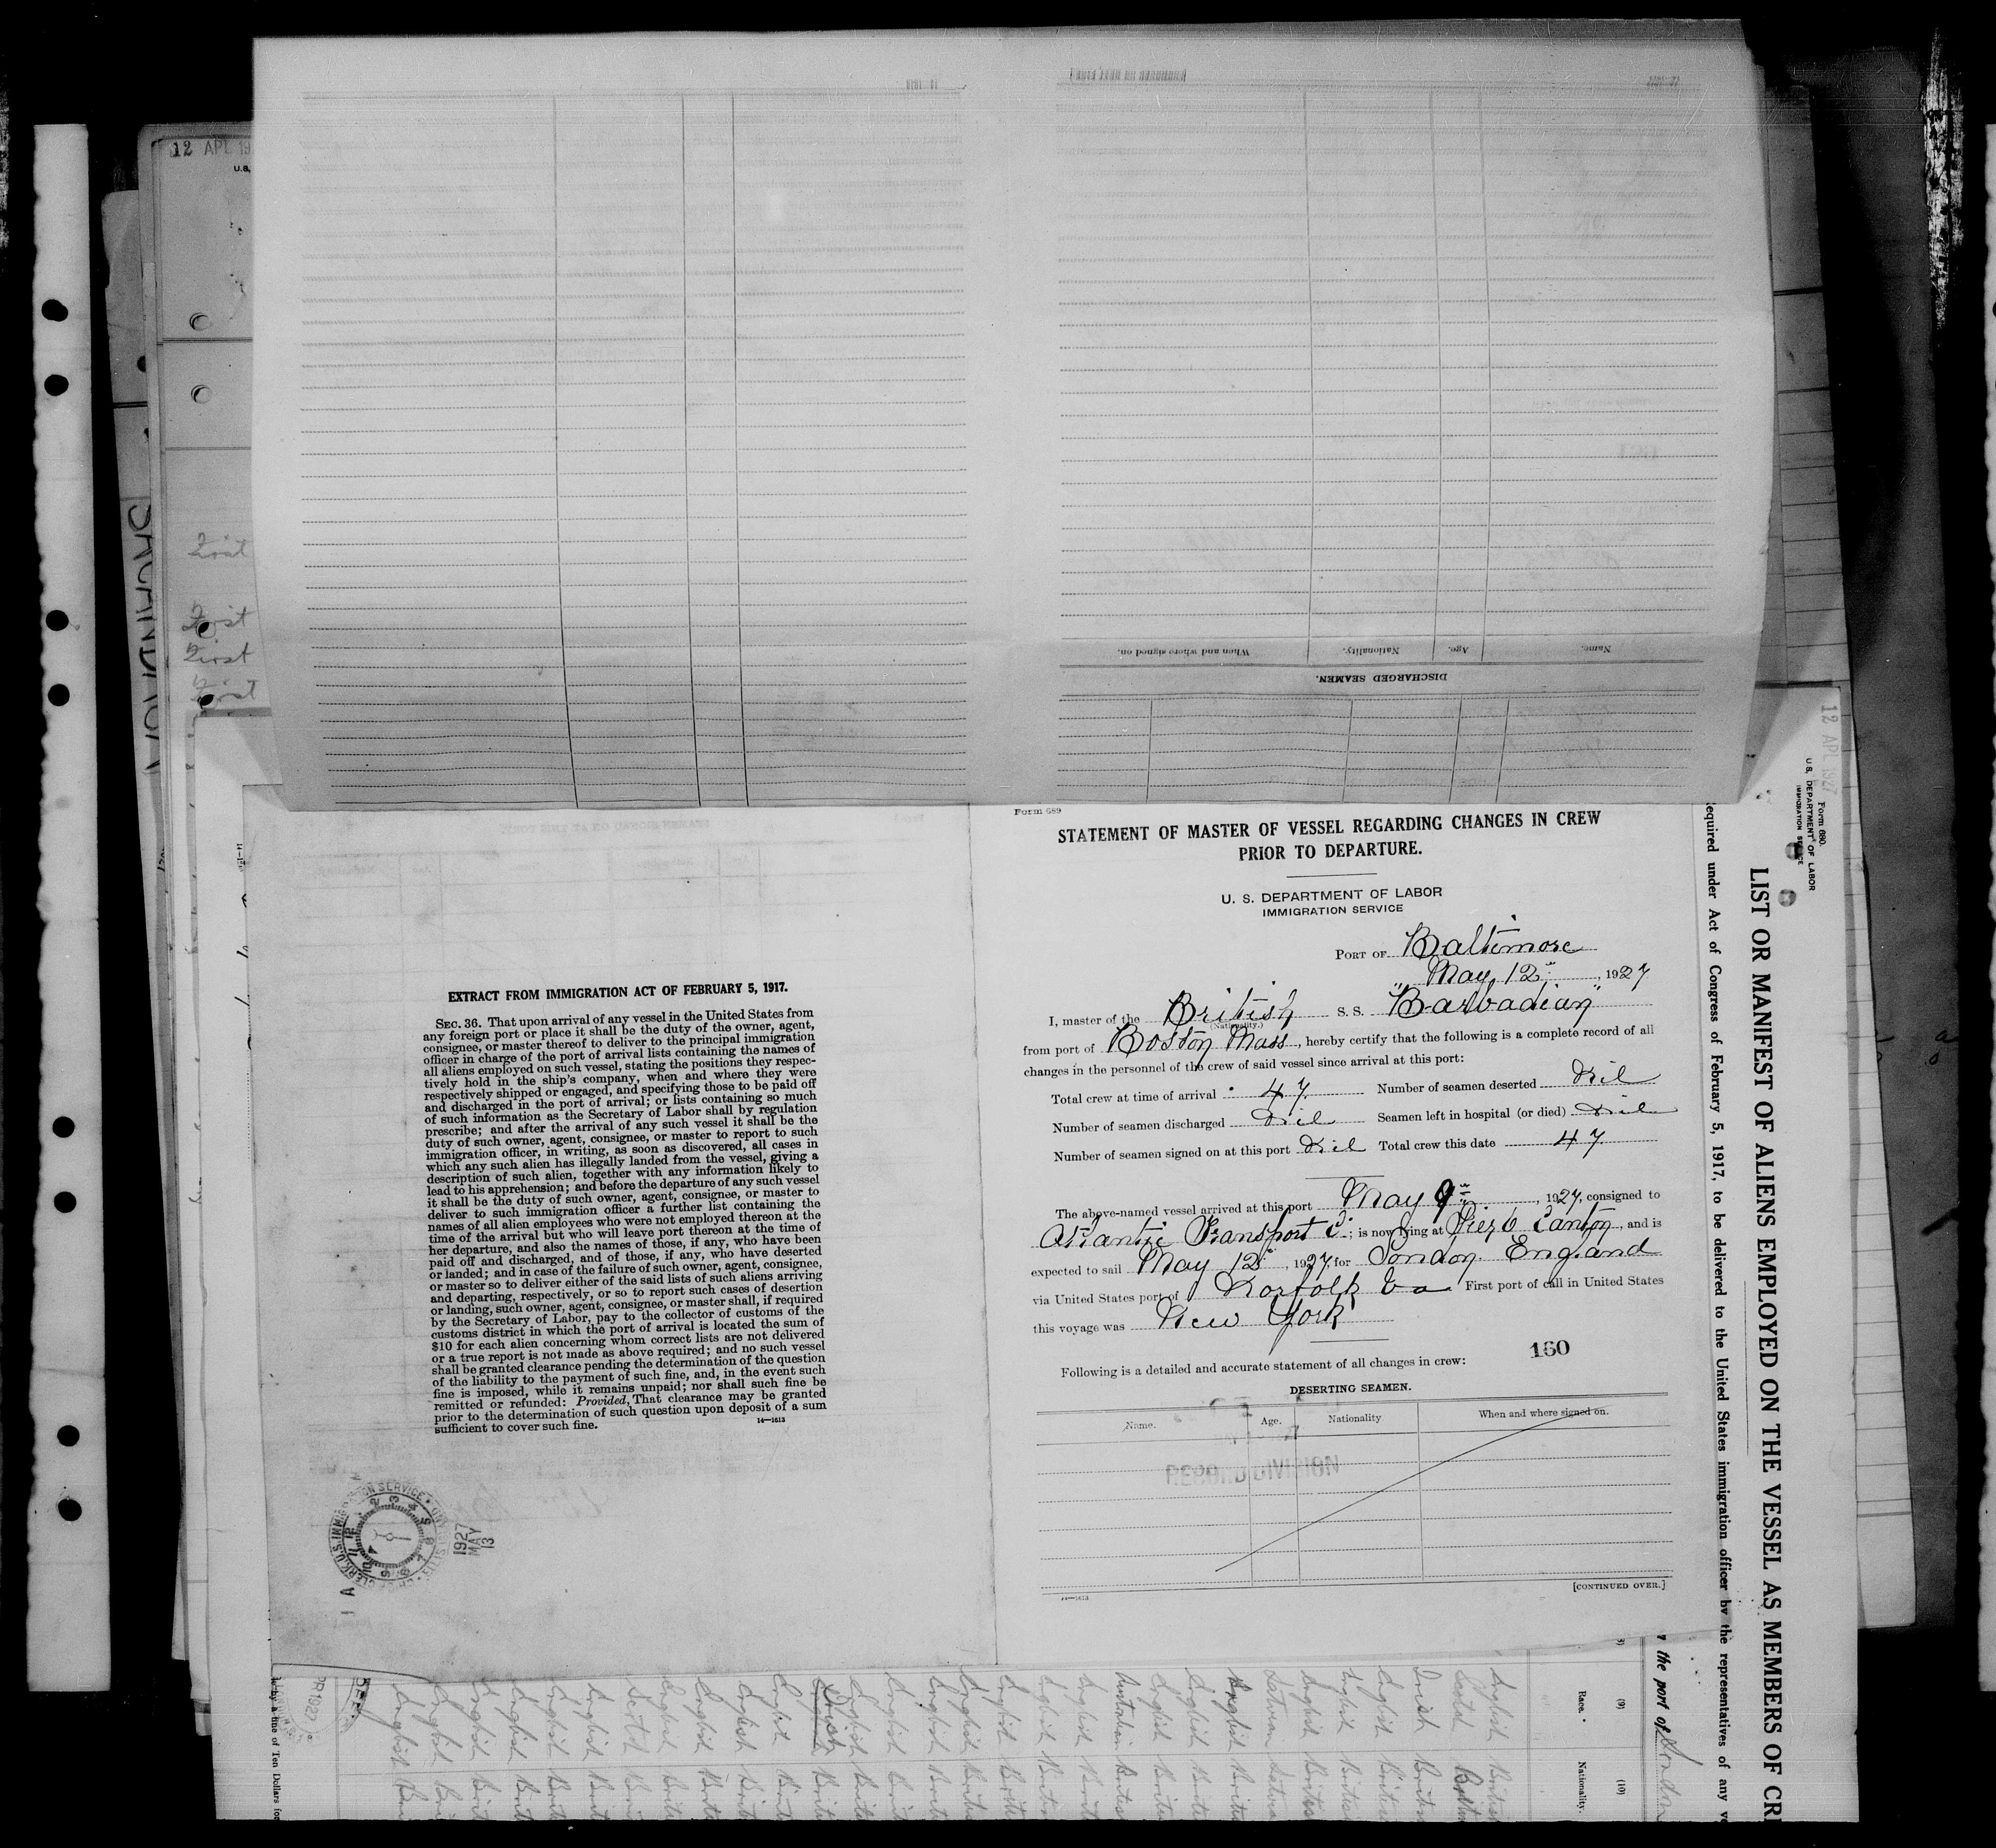 12 APL 19
U.S.
First
First
First
First
Name.
Age.
Nationality.
When and where signed on.
DISCHARGED SEAMEN.
Form 689
STATEMENT OF MASTER OF VESSEL REGARDING CHANGES IN CREW
PRIOR TO DEPARTURE.
U. S. DEPARTMENT OF LABOR
IMMIGRATION SERVICE
PORT OF Baltimore
May 12, 1927
I, master of the British S. S. "Barbadian"
(Nationality.)
from port of Boston Mass, hereby certify that the following is a complete record of all
changes in the personnel of the crew of said vessel since arrival at this port:
Total crew at time of arrival 47 Number of seamen deserted Nil
Number of seamen discharged Nil Seamen left in hospital (or died) Nil
Number of seamen signed on at this port Nil Total crew this date 47
The above-named vessel arrived at this port May 9th, 1927, consigned to
Atlantic Transport Co.; is now lying at Pier 6 Canton, and is
expected to sail May 12, 1927, for London. England
via United States port of Norfolk Va First port of call in United States
this voyage was New York
160
Following is a detailed and accurate statement of all changes in crew:
DESERTING SEAMEN.
Name. Age. Nationality When and where signed on.
RECORD DIVISION
[CONTINUED OVER.]
14—1613
EXTRACT FROM IMMIGRATION ACT OF FEBRUARY 5, 1917.
SEC. 36. That upon arrival of any vessel in the United States from
any foreign port or place it shall be the duty of the owner, agent,
consignee, or master thereof to deliver to the principal immigration
officer in charge of the port of arrival lists containing the names of
all aliens employed on such vessel, stating the positions they respec-
tively hold in the ship's company, when and where they were
respectively shipped or engaged, and specifying those to be paid off
and discharged in the port of arrival; or lists containing so much
of such information as the Secretary of Labor shall by regulation
prescribe; and after the arrival of any such vessel it shall be the
duty of such owner, agent, consignee, or master to report to such
immigration officer, in writing, as soon as discovered, all cases in
which any such alien has illegally landed from the vessel, giving a
description of such alien, together with any information likely to
lead to his apprehension; and before the departure of any such vessel
it shall be the duty of such owner, agent, consignee, or master to
deliver to such immigration officer a further list containing the
names of all alien employees who were not employed thereon at the
time of the arrival but who will leave port thereon at the time of
her departure, and also the names of those, if any, who have been
paid off and discharged, and of those, if any, who have deserted
or landed; and in case of the failure of such owner, agent, consignee,
or master so to deliver either of the said lists of such aliens arriving
and departing, respectively, or so to report such cases of desertion
or landing, such owner, agent, consignee, or master shall, if required
by the Secretary of Labor, pay to the collector of customs of the
customs district in which the port of arrival is located the sum of
$10 for each alien concerning whom correct lists are not delivered
or a true report is not made as above required; and no such vessel
shall be granted clearance pending the determination of the question
of the liability to the payment of such fine, and, in the event such
fine is imposed, while it remains unpaid; nor shall such fine be
remitted or refunded: Provided, That clearance may be granted
prior to the determination of such question upon deposit of a sum
sufficient to cover such fine.
14—1613
1927
MAY
13
12 APL 1927
Form 680.
U.S. DEPARTMENT OF LABOR
IMMIGRATION SERVICE
LIST OR MANIFEST OF ALIENS EMPLOYED ON THE VESSEL AS MEMBERS OF CR
required under Act of Congress of February 5, 1917, to be delivered to the United States immigration officer by the representatives of any ve
the port of London
(9)
Race.
(10)
Nationality.
by a fine of Ten Dollars for